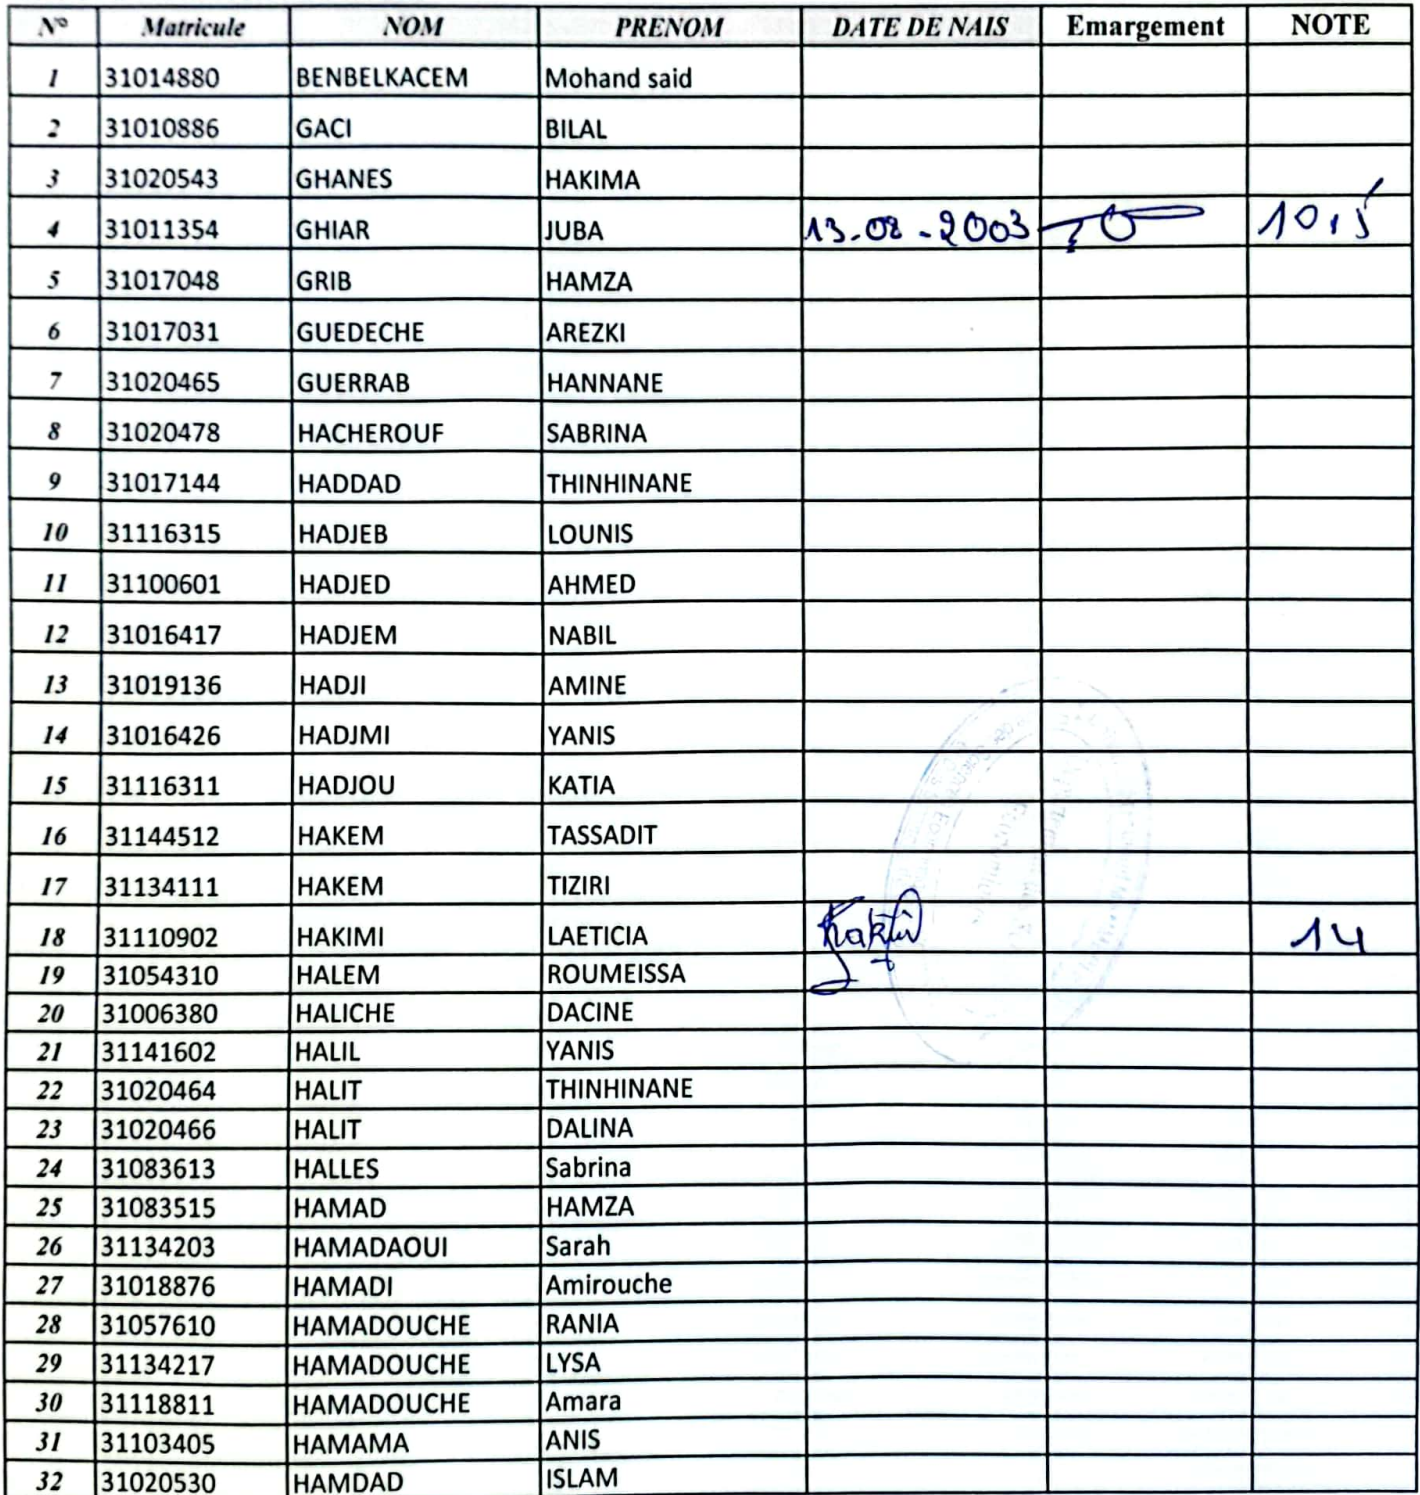 N° Matricule NOM PRENOM DATE DE NAIS Emargement NOTE
1 31014880 BENBELKACEM Mohand said
2 31010886 GACI BILAL
3 31020543 GHANES HAKIMA
4 31011354 GHIAR JUBA 13-08-2003 10,5
5 31017048 GRIB HAMZA
6 31017031 GUEDECHE AREZKI
7 31020465 GUERRAB HANNANE
8 31020478 HACHEROUF SABRINA
9 31017144 HADDAD THINHINANE
10 31116315 HADJEB LOUNIS
11 31100601 HADJED AHMED
12 31016417 HADJEM NABIL
13 31019136 HADJI AMINE
14 31016426 HADJMI YANIS
15 31116311 HADJOU KATIA
16 31144512 HAKEM TASSADIT
17 31134111 HAKEM TIZIRI
18 31110902 HAKIMI LAETICIA 14
19 31054310 HALEM ROUMEISSA
20 31006380 HALICHE DACINE
21 31141602 HALIL YANIS
22 31020464 HALIT THINHINANE
23 31020466 HALIT DALINA
24 31083613 HALLES Sabrina
25 31083515 HAMAD HAMZA
26 31134203 HAMADAOUI Sarah
27 31018876 HAMADI Amirouche
28 31057610 HAMADOUCHE RANIA
29 31134217 HAMADOUCHE LYSA
30 31118811 HAMADOUCHE Amara
31 31103405 HAMAMA ANIS
32 31020530 HAMDAD ISLAM